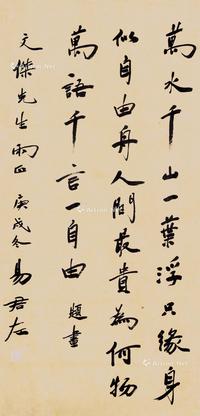 萬水千山一葉浮只緣身
似自由身人間最貴為何物
萬語千言一自由 題畫
文傑先生兩正 庚戌冬 易君左